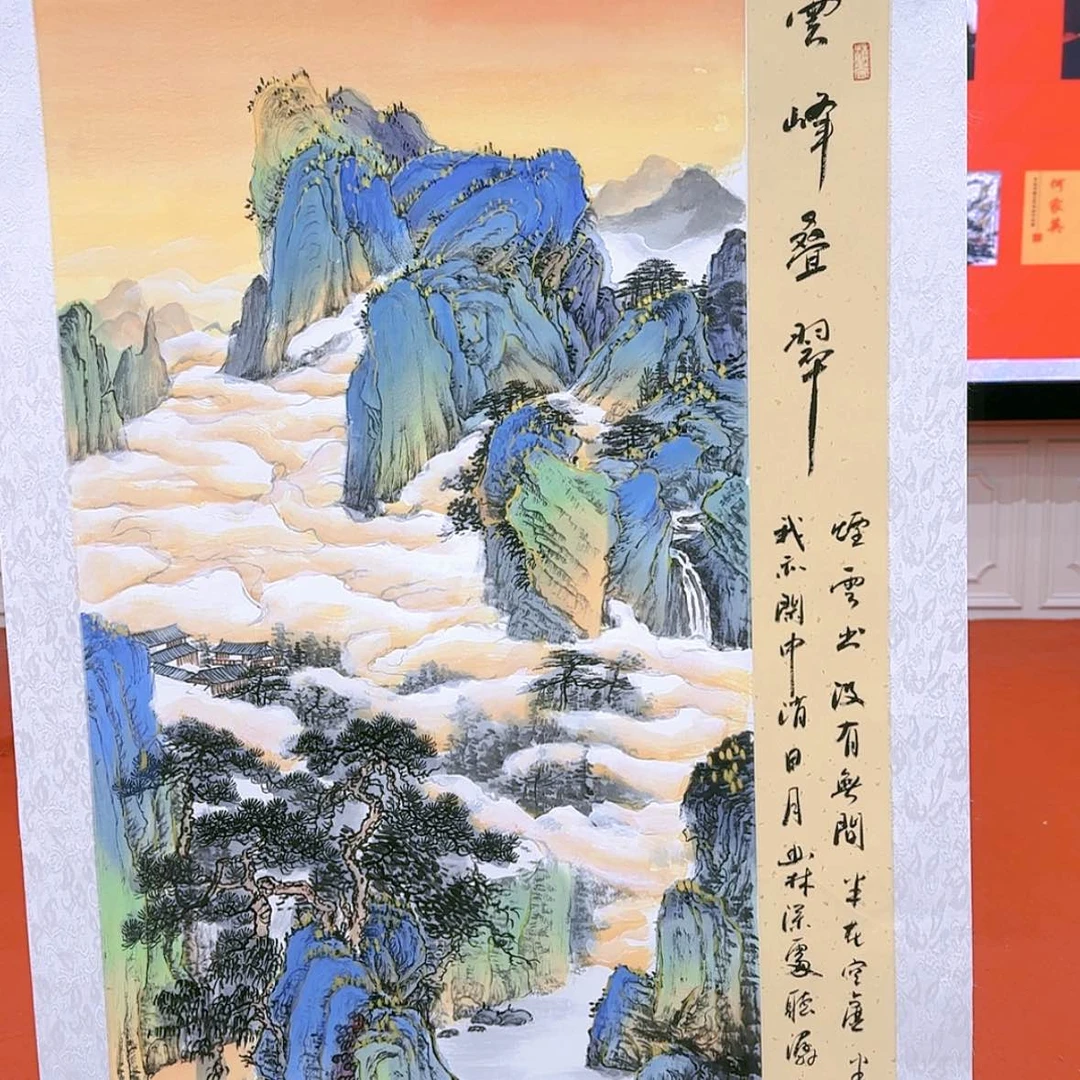 雲峰叠翠
煙雲出没有無間半在空虛半
我亦閑中消日月幽林深處聽潺
何家英